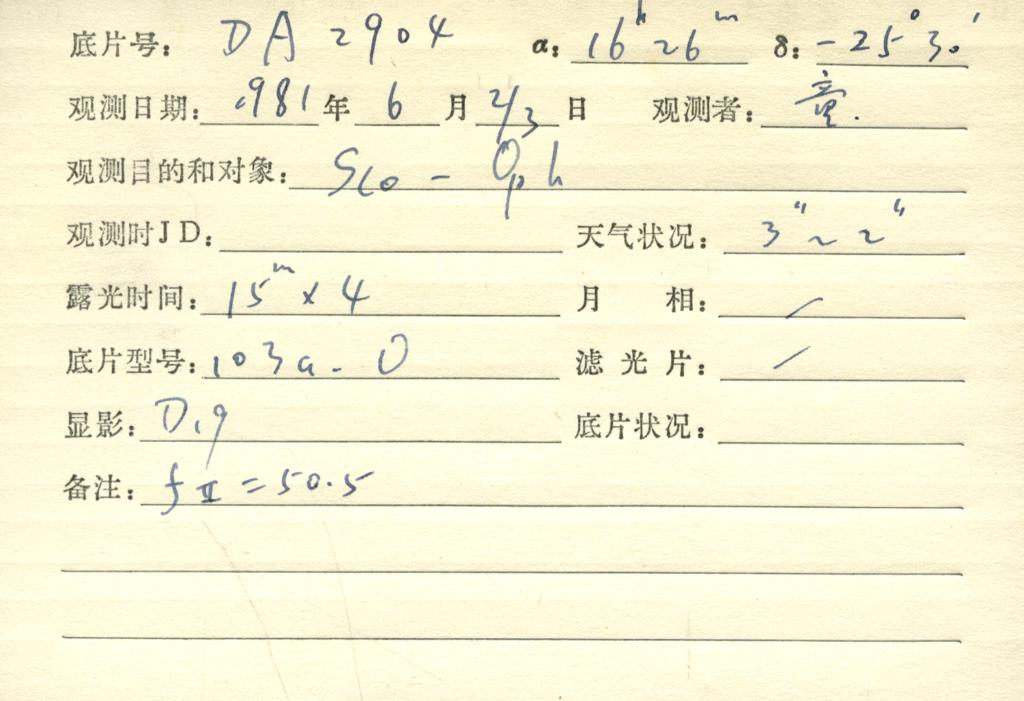 底片号: DA 2904 α: 16h 26m δ: -25° 30'
观测日期: 1981年 6 月 2/3 日 观测者: 童.
观测目的和对象: Sco - Oph
观测时JD: 天气状况: 3" ~ 2"
露光时间: 15m × 4 月 相: /
底片型号: 103a-O 滤光片: /
显影: D19 底片状况:
备注: fⅡ = 50.5